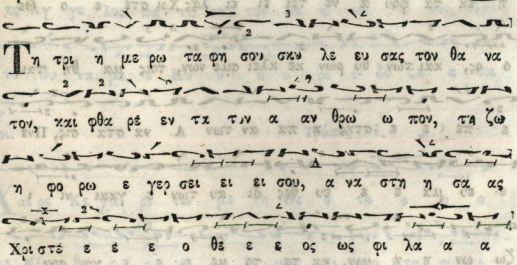 Τη τρι η με ρω τα φη σου σκυ λε ευ σας τον θα να
τον, και φθα ρέ εν τα των α αν θρω ω πον, τη ζω
η φο ρω ε γερ σει ει ει σου, α να στη η σα ας
Χρι στέ ε έ ε ο θε ε ε ος ως φι λα α α